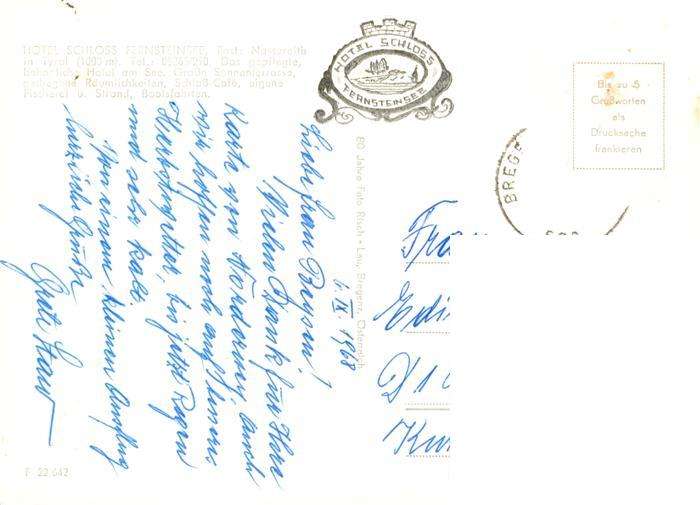 HOTEL SCHLOSS FERNSTEINSEE, Post: Nassereith
in Tyrol (1000 m). Tel.: 05265/210. Das gepflegte,
behagliche Hotel am See. Große Sonnenterrasse,
Räumlichkeiten, Schloß-Café, eigene
Fischerei u. Strand, Bootsfahrten.
HOTEL SCHLOSS
FERNSTEINSEE
Bis zu 5
Grußworten
als
Drucksache
frankieren
BREGE
80 Jahre Foto Risch-Lau, Bregenz, Österreich
6. IX. 1968
Liebe Frau
Vielen Dank für Ihre
Karte von Norderney, auch
wir hoffen noch auf einen
Herbst bis jetzt Regen
und sehr kalt.
Von einem kleinen Ausflug
herzliche Grüße
Grete
Fra
Edi
D 1
Kur
F 22.642